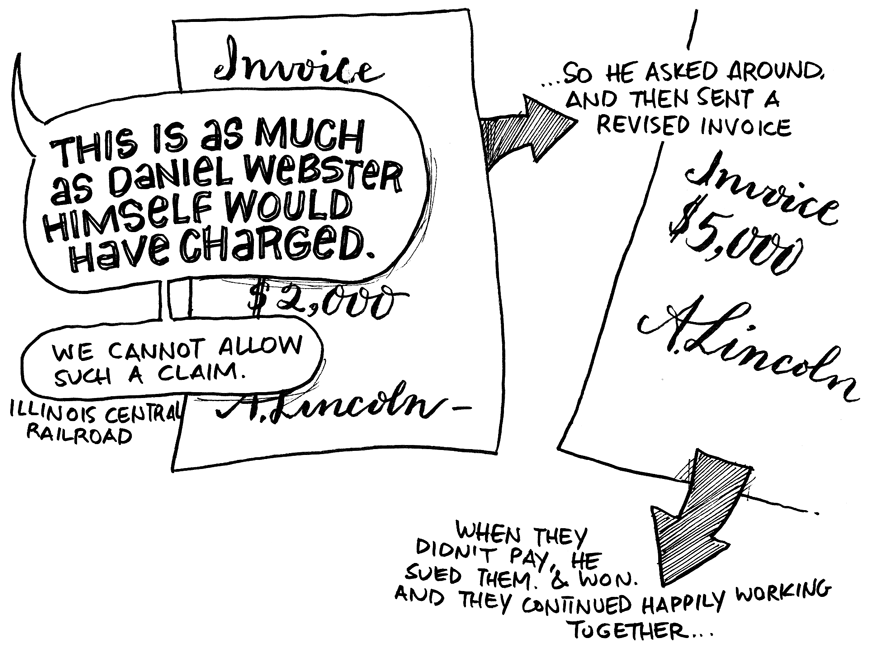 Invoice
THIS IS AS MUCH
AS DANIEL WEBSTER
HIMSELF WOULD
HAVE CHARGED.
$2,000
WE CANNOT ALLOW
SUCH A CLAIM.
ILLINOIS CENTRAL
RAILROAD
A. Lincoln
...SO HE ASKED AROUND,
AND THEN SENT A
REVISED INVOICE
Invoice
$5,000
A. Lincoln
WHEN THEY
DIDN'T PAY, HE
SUED THEM. & WON.
AND THEY CONTINUED HAPPILY WORKING
TOGETHER...